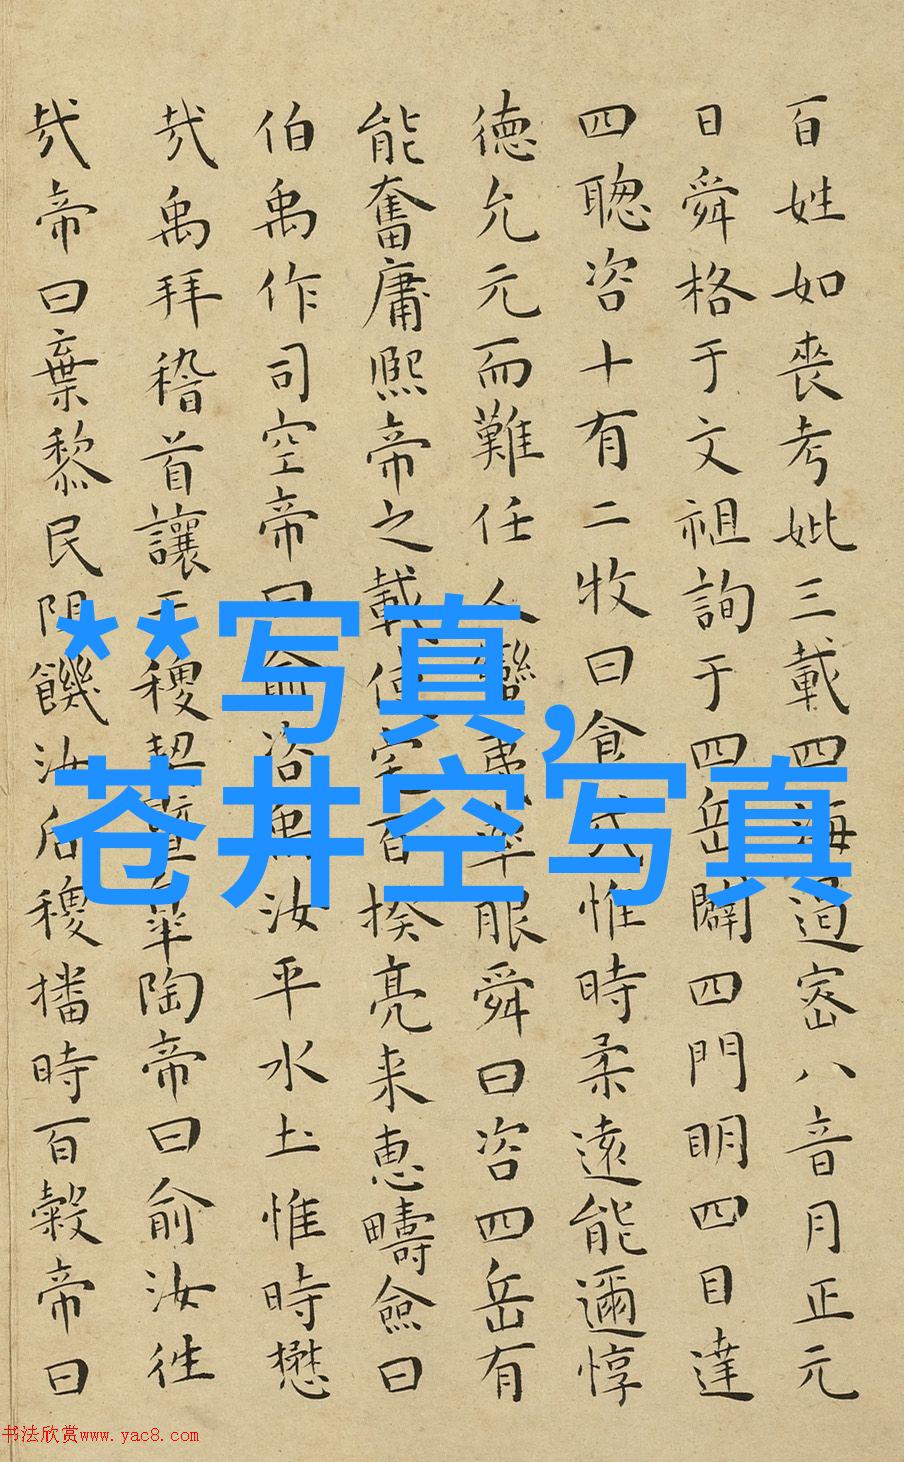 百姓如喪考妣三載四海遏密八音月正元
日舜格于文祖詢于四岳闢四門明四目達
四聦咨十有二牧曰食哉惟時柔遠能邇惇
徳允元而難任人蠻夷率服舜曰咨四岳有
能奮庸熙帝之載使宅百揆亮来恵疇僉曰
伯禹作司空帝曰俞咨禹汝平水土惟時懋
哉禹拜稽首讓于稷契暨皐陶帝曰俞汝往
哉帝曰棄黎民阻饑汝后稷播時百穀帝曰
**写真,
苍井空写真
书法欣赏www.yac8.com